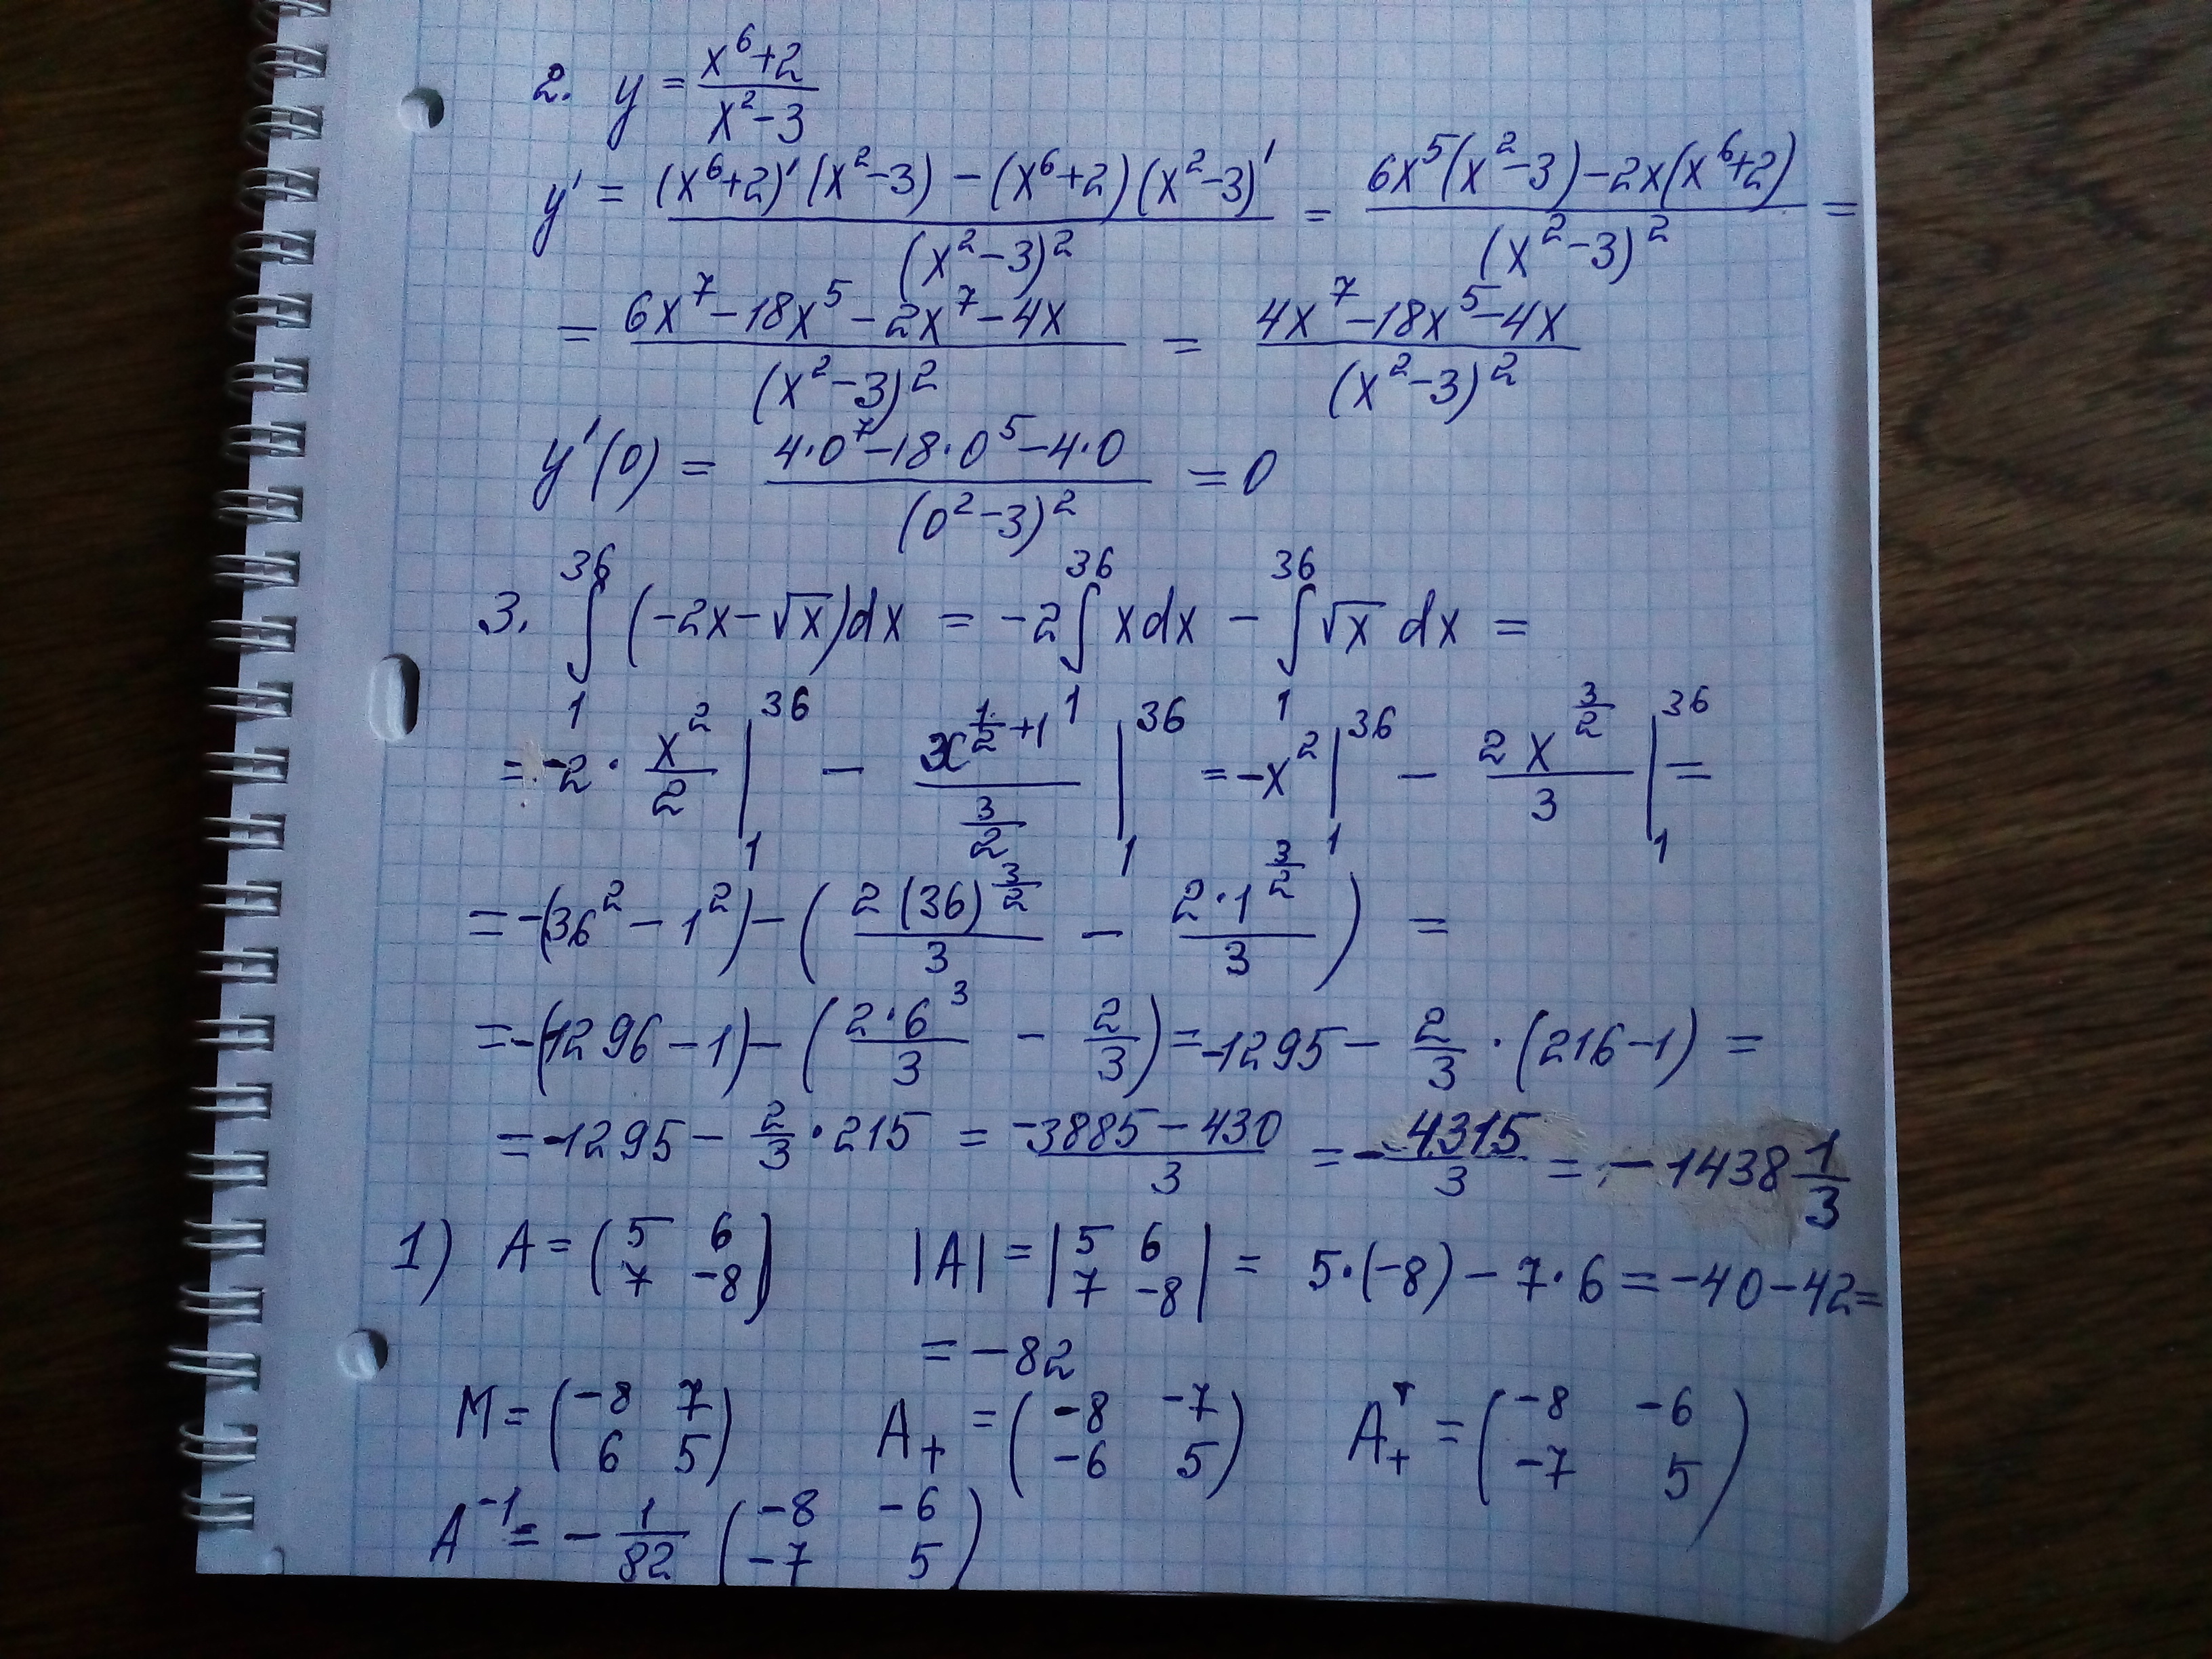 2. y = (x^6+2)/(x^2-3)
y' = ((x^6+2)'(x^2-3) - (x^6+2)(x^2-3)')/(x^2-3)^2 = (6x^5(x^2-3)-2x(x^6+2))/(x^2-3)^2 =
= (6x^7-18x^5-2x^7-4x)/(x^2-3)^2 = (4x^7-18x^5-4x)/(x^2-3)^2
y'(0) = (4·0^7-18·0^5-4·0)/(0^2-3)^2 = 0
3. ∫_1^36 (-2x-√x)dx = -2∫_1^36 xdx - ∫_1^36 √x dx =
= -2 · x^2/2 |_1^36 - x^(1/2+1)/(3/2) |_1^36 = -x^2 |_1^36 - 2x^(3/2)/3 |_1^36 =
= -(36^2 - 1^2) - (2(36)^(3/2)/3 - 2·1^(3/2)/3) =
= -(1296-1) - (2·6^3/3 - 2/3) = -1295 - 2/3 · (216-1) =
= -1295 - 2/3 · 215 = (-3885-430)/3 = -4315/3 = -1438 1/3
1) A = (5 6; 7 -8) |A| = |5 6; 7 -8| = 5·(-8) - 7·6 = -40-42=
= -82
M = (-8 7; 6 5) A_+ = (-8 -7; -6 5) A_+^T = (-8 -6; -7 5)
A^-1 = -1/82 (-8 -6; -7 5)